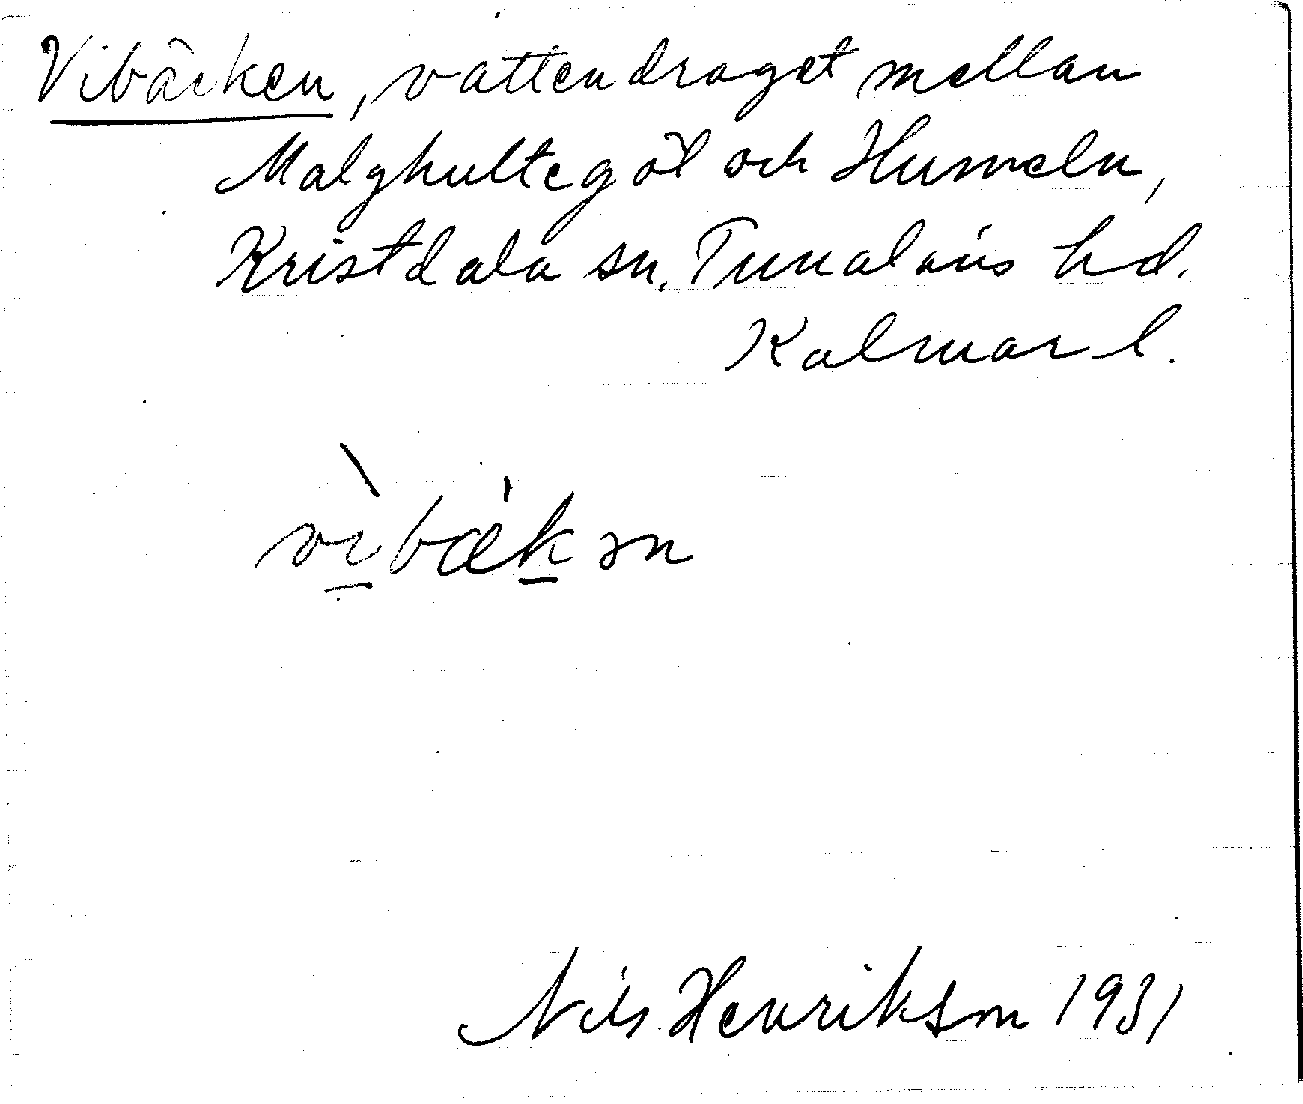 Vibäcken, vattendraget mellan
Malghultegöl och Humeln,
Kristdala sn. Tunaläns hd.
Kalmar l.
vìbækən
Nils Henrikson 1931